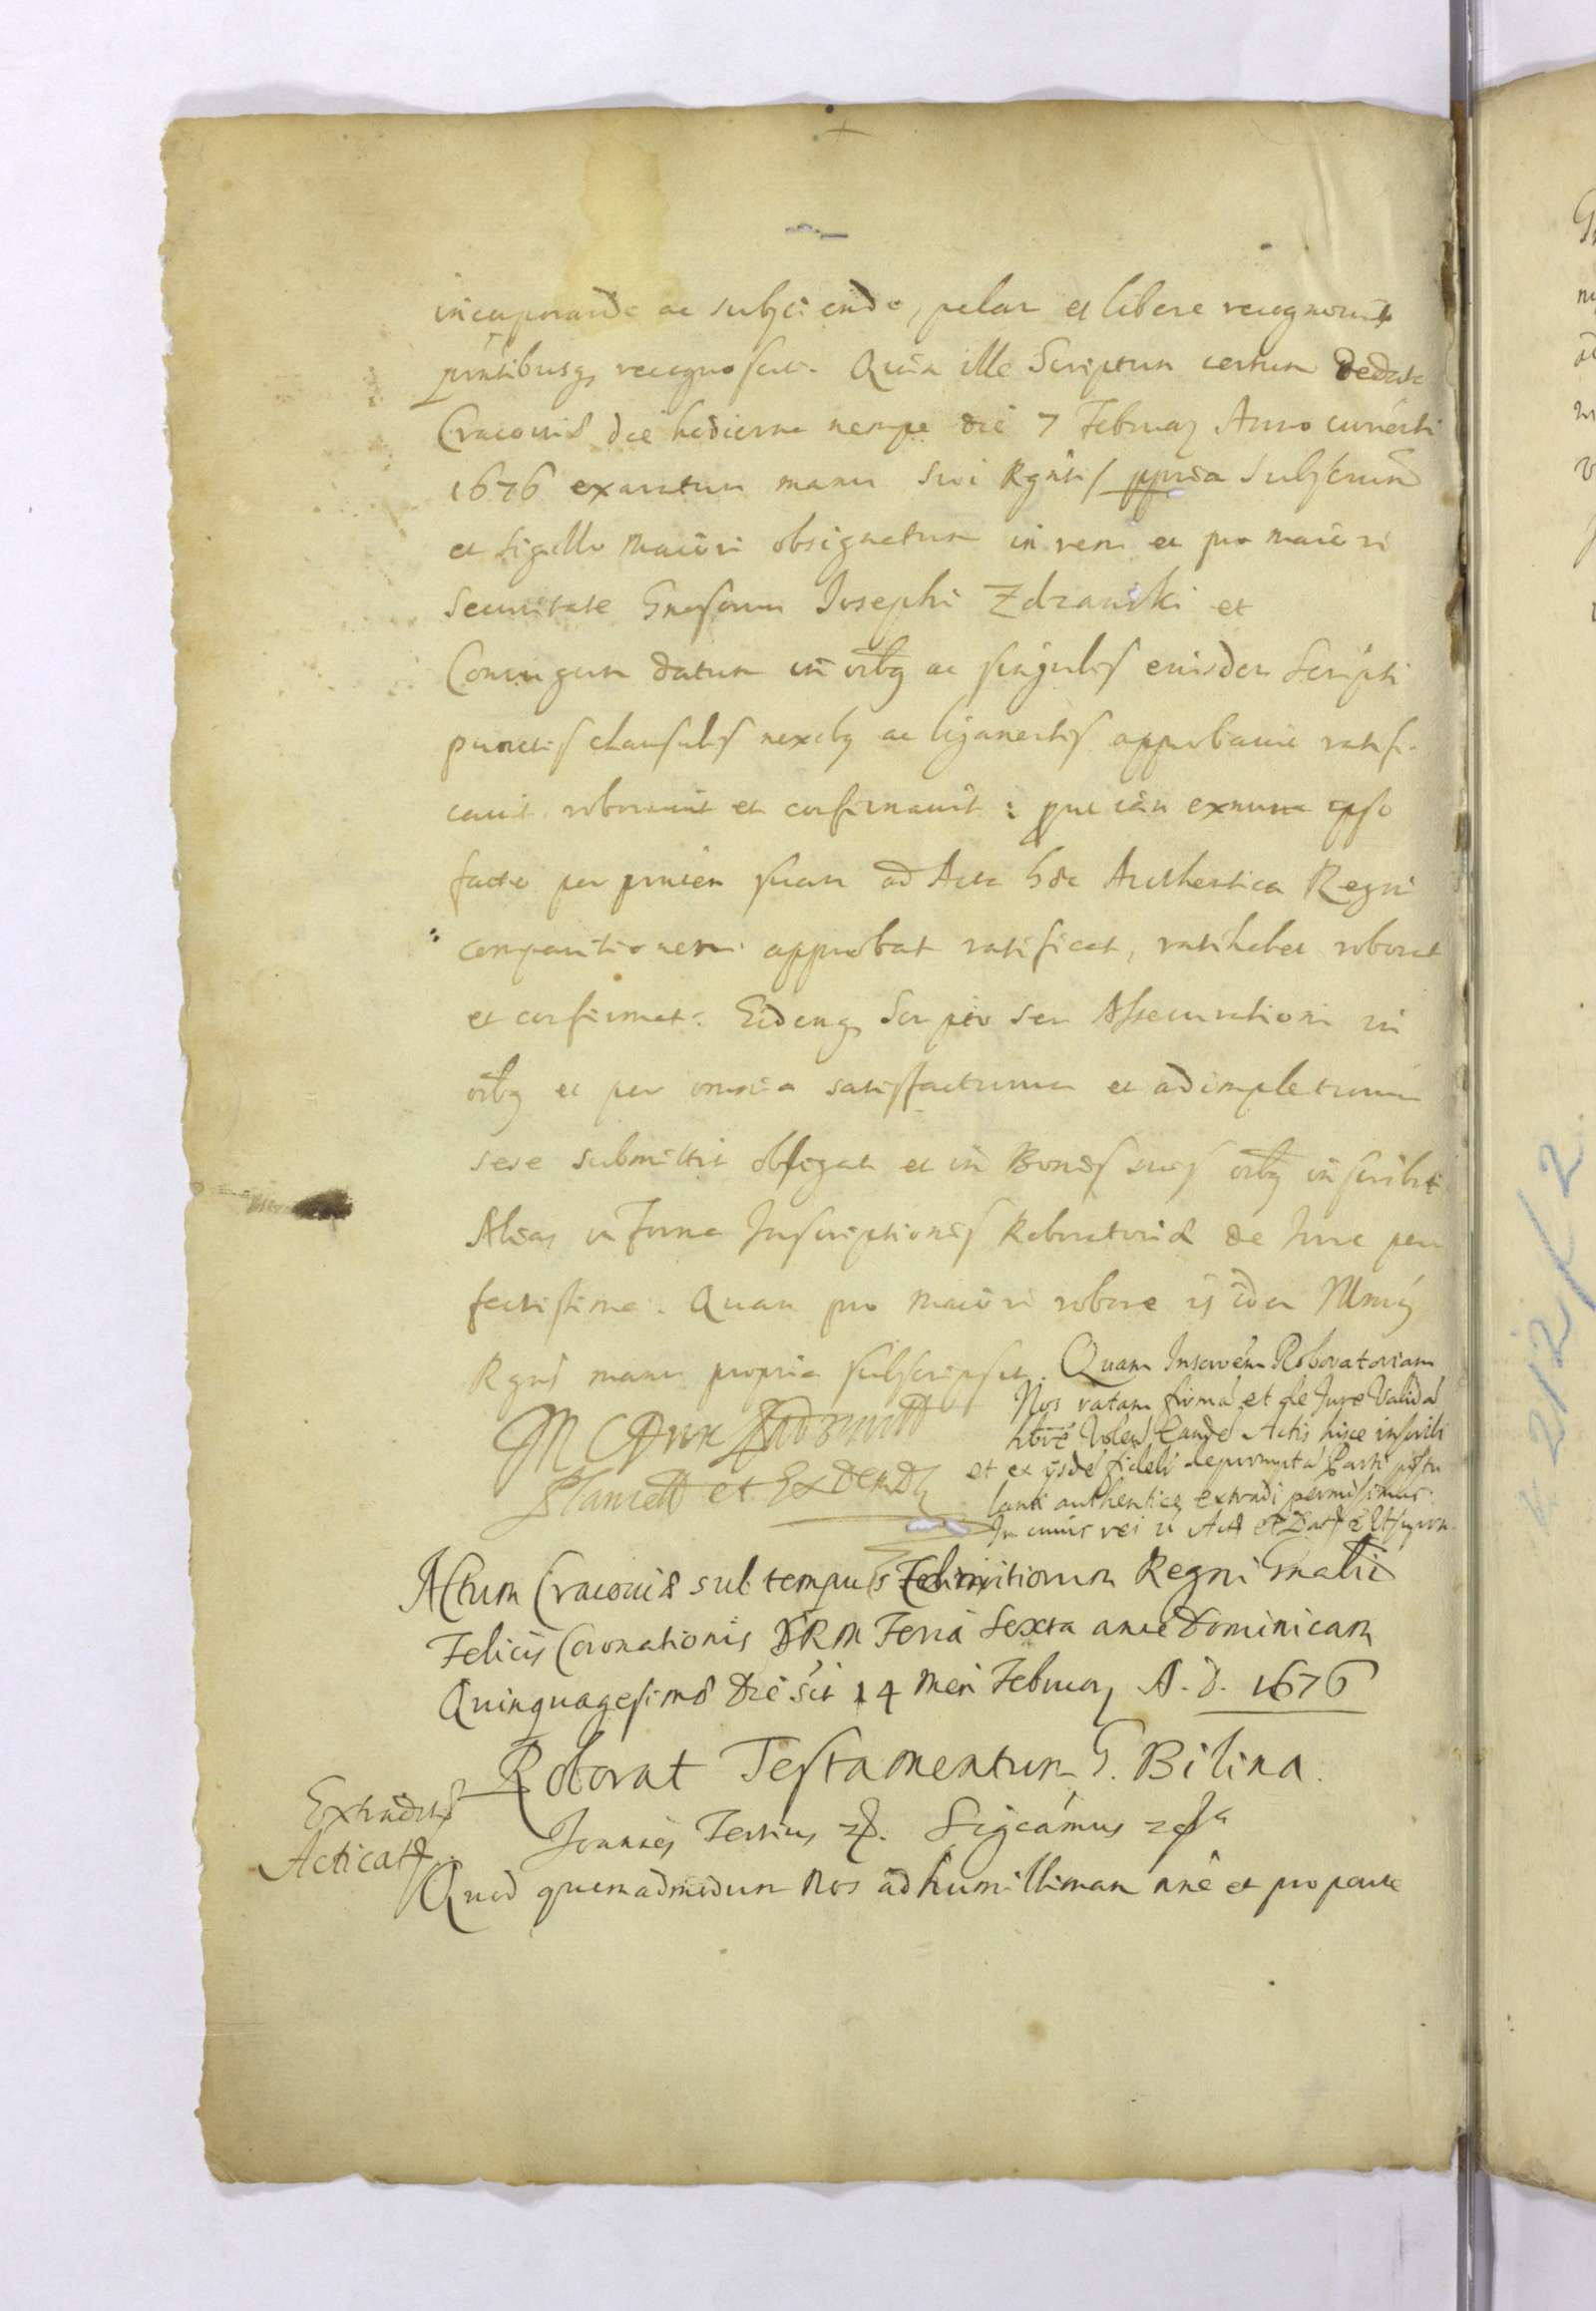 incorporando ac subjiciendo, palam et libere recognovit
pntibusq recognoscit. Quia ille Scriptum certum de data
Cracoviæ die hodierna nempe die 7 Februar Anno currenti
1676 exaratum manu sui Rgntis ppria Subscriptum
et sigillo maiori obsignatum in rem et pro maiori
securitate Gnosorum Josephi Zdzanski et
Coniugum datum in oibq ac singulis eiusdem Scripti
punctis clausulis nexibq ac ligamentis approbavit ratifi-
cavit roboravit et confirmavit: prout iam exnunc ipso
facto per pntem suam ad Acta hæc Authentica Regni
comparitionem approbat ratificat, ratihabet roborat
et confirmat. Eidemq Scripto seu Assecurationi in
oibq et per omnia satisfacturum et adimpleturum
sese submittit obligat et in Bonis suis oibq inscribit
Alias in forma Inscriptionis Roboratoriæ de Jure per
fectissima. Quam pro maiori robore is idem
Rgns manu propria subscripsit. Quam Inscrõem Roboratoriam
Nos ratam firmã et de Jure Validã
hre Volen eandẽ Actis hisce inscribi
et ex ijsdẽ fideli depromptã Parti postu
lanti authentice extradi permisimus.
In cuius rei
et Extend
Actum Cracoviæ sub tempus Comitiorum Regni Gnaliũ
Felicis Coronationis SRM Feria Sexta ante Dominicam
Quinquagesimæ Die sci 14 men Februar A. D. 1676
Roborat Testamentum G. Bilina.
Extradit
Joannes Tertius Sigcamus
Acticat
Quod quemadmodum Nos ad humillimam nne et pro parte
212